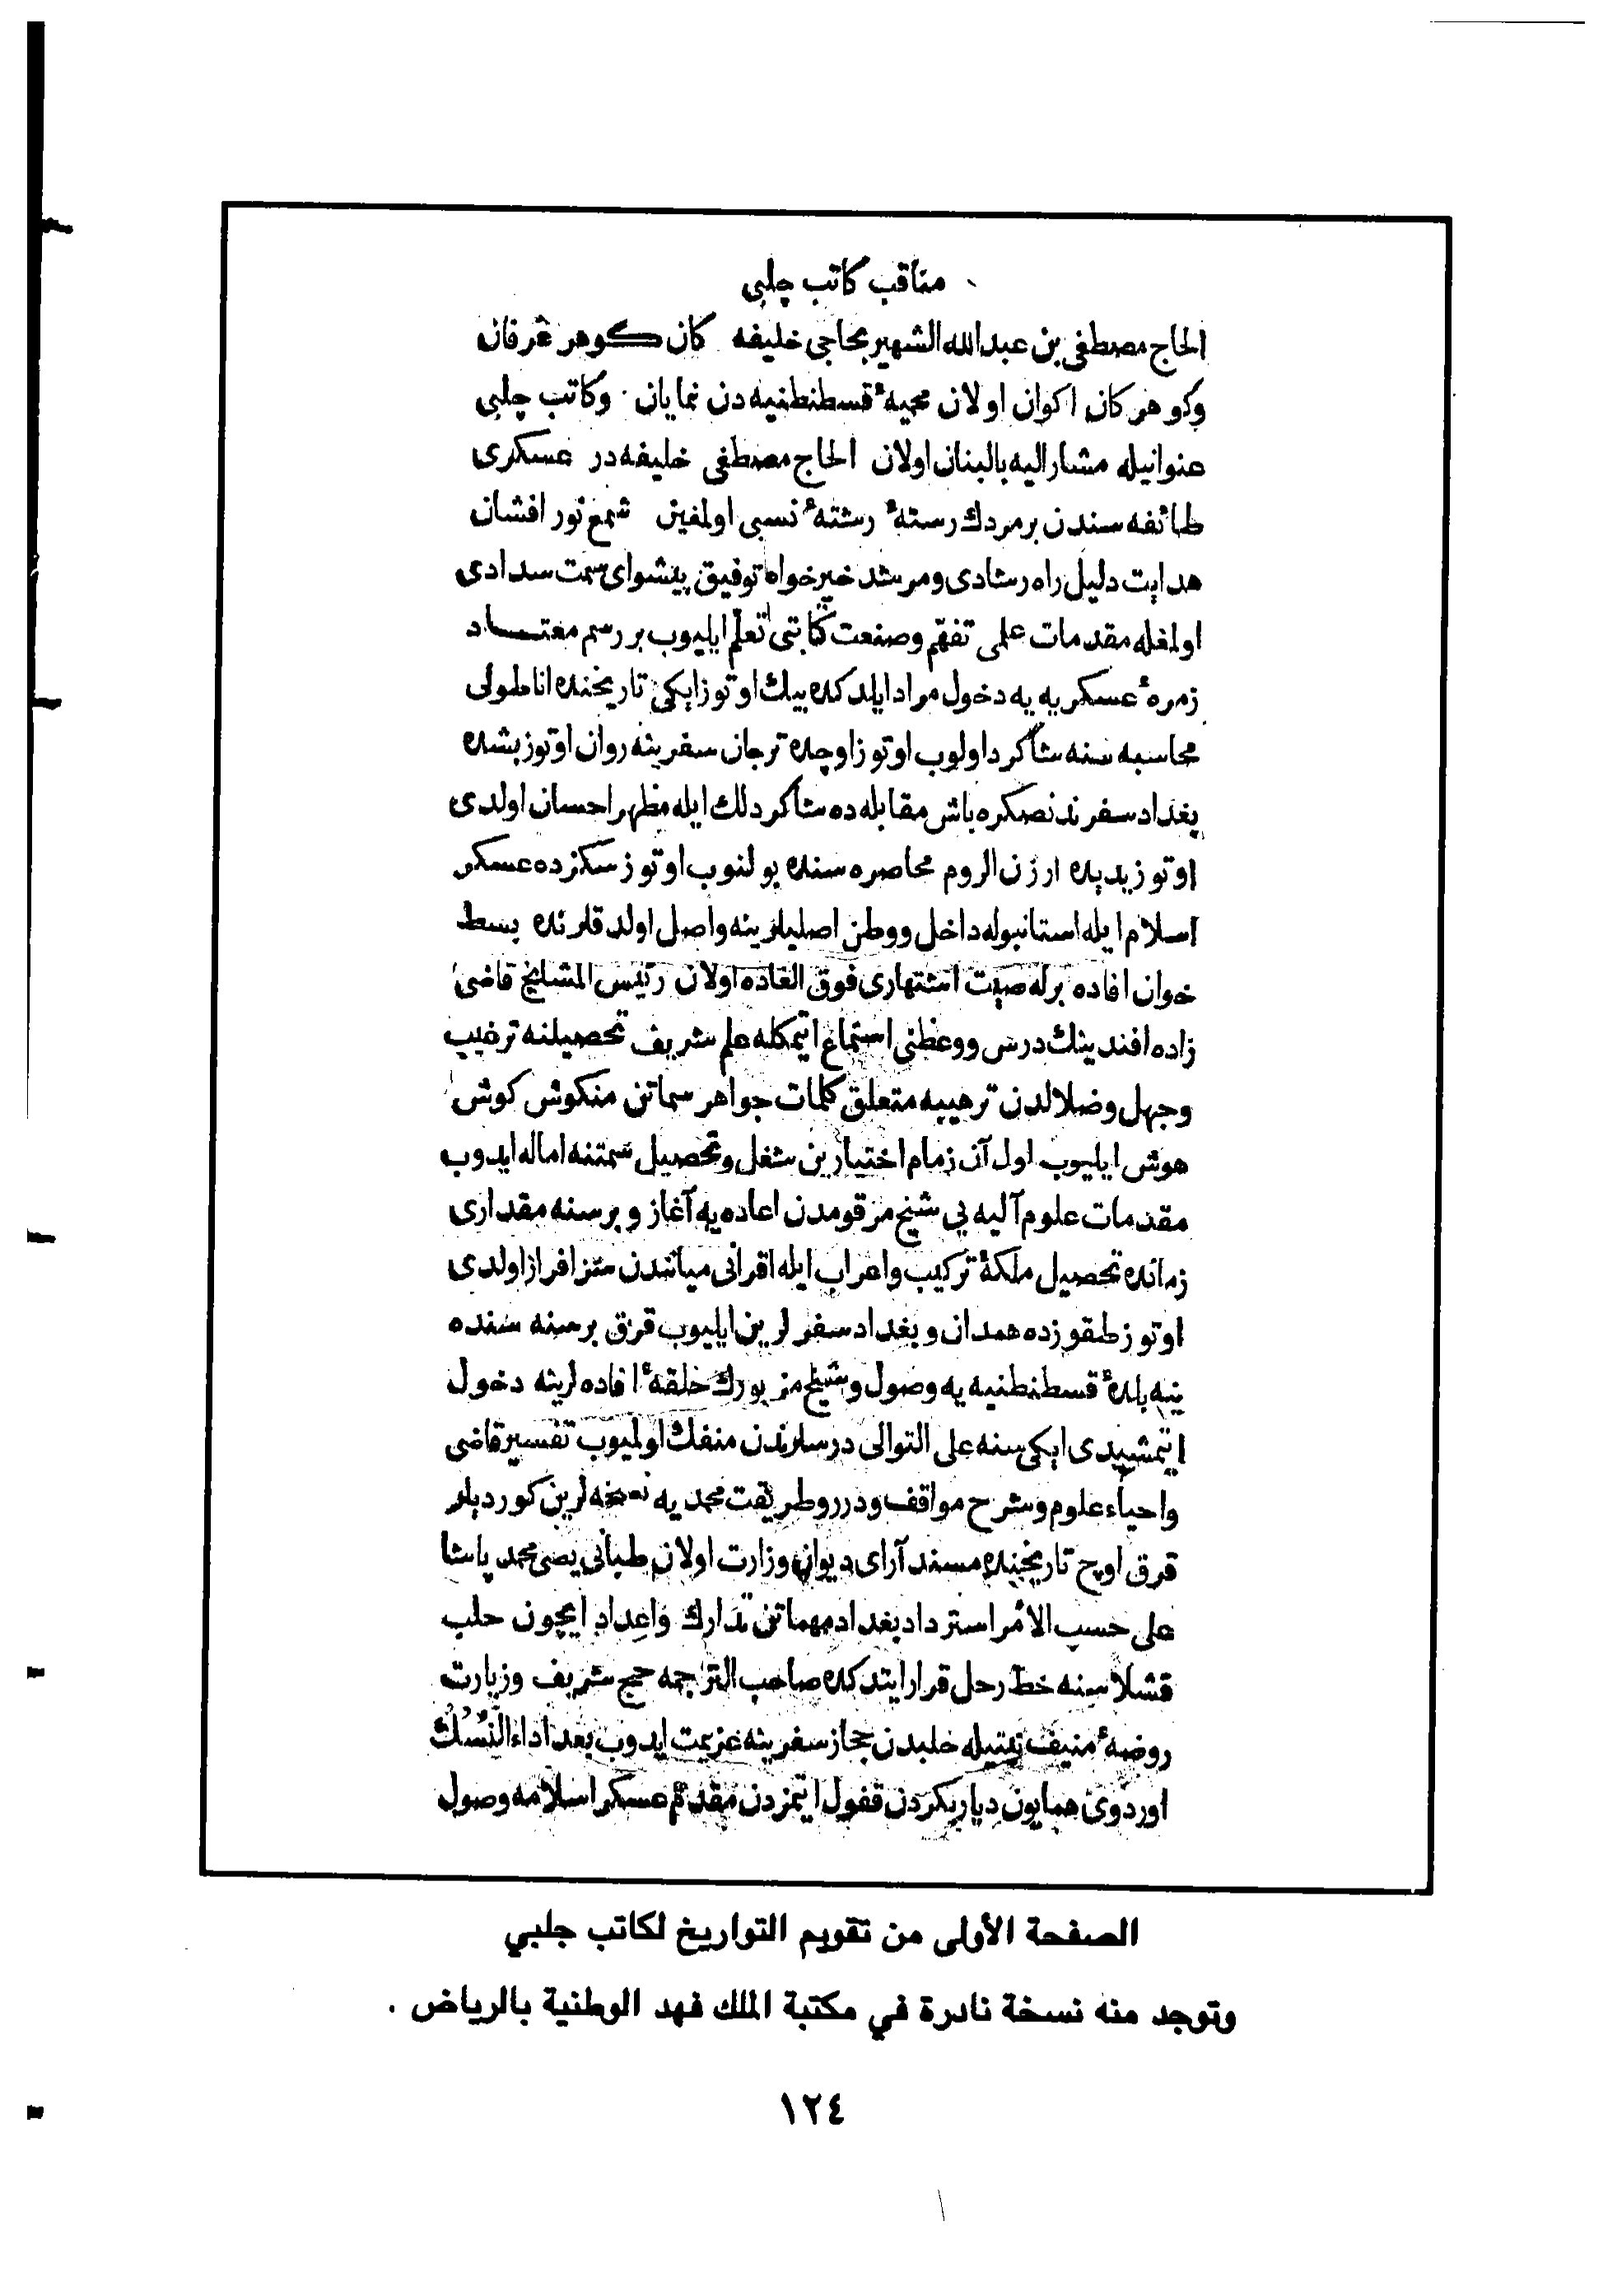 مناقب كاتب چلبى
الحاج مصطفى بن عبدالله الشهير بحاجى خليفه كان كوهر عرفان
وكوهر كان اكوان اولان محميهٔ قسطنطنيه دن نمايان وكاتب چلبى
عنوانيله مشار اليه بالبنان اولان الحاج مصطفى خليفه در عسكرى
طائفه سندن بر مردك رستهٔ رشتهٔ نسبى اولمغين شمع نور افشان
هدايت دليل راه رشادى ومرشد خير خواه توفيق پيشواى سمت سدادى
اولمغله مقدمات علمى تفهّم وصنعت كتابتى تعلّم ايليوب بر رسم معتاد
زمرهٔ عسكريه يه دخول مراد ايلدكده بيك اوتوز ايكى تاريخنده اناطولى
محاسبه سنه شاكرد اولوب اوتوز اوچده ترجان سفرينه روان اوتوز بشده
بغداد سفرندنصكره باش مقابله ده شاكردلك ايله مظهر احسان اولدى
اوتوز يديده ارزن الروم محاصره سنده بولنوب اوتوز سكزده عسكر
اسلام ايله استانبوله داخل ووطن اصليلرينه واصل اولدقلرنده بسط
خوان افاده برله صيت اشتهارى فوق العاده اولان رئيس المشايخ قاضى
زاده افندينك درس ووعظنى استماع اتمكله علم شريف تحصيلنه ترغيب
وجهل وضلالدن ترهيبه متعلق كلمات جواهر سماتن منكوش كوش
هوش ايليوب اول آن زمام اختيارين شغل وتحصيل سمتنه اماله ايدوب
مقدمات علوم آليه يى شيخ مرقومدن اعاده يه آغاز وبر سنه مقدارى
زمانده تحصيل ملكهٔ تركيب واعراب ايله اقرانى ميانندن سرافراز اولدى
اوتوز طقوزده همدان وبغداد سفرلرين ايليوب قرق بر سنه سنده
ينه بلدهٔ قسطنطنيه يه وصول وشيخ مزبورك حلقهٔ افاده لرينه دخول
اتمشيدى ايكى سنه على التوالى درسلرندن منفك اولميوب تفسير قاضى
واحياء علوم وشرح مواقف ودرر وطريقت محمديه نسخه لرين كورديلر
قرق اوچ تاريخنده مسند آراى ديوان وزارت اولان طبانى يصى محمد پاشا
على حسب الأمر استرداد بغداد مهماتن تدارك واعداد ايچون حلب
قشلاسنه خطّ رحل قرار ايتدكده صاحب الترجمه حج شريف وزيارت
روضهٔ منيف نيتيله حلبدن حجاز سفرينه عزيمت ايدوب بعد اداء النّسك
اوردوى همايون ديار بكردن قفول اتمزدن مقدّم عسكر اسلامه وصول
الصفحة الأولى من تقويم التواريخ لكاتب جلبي
وتوجد منه نسخة نادرة في مكتبة الملك فهد الوطنية بالرياض .
١٢٤